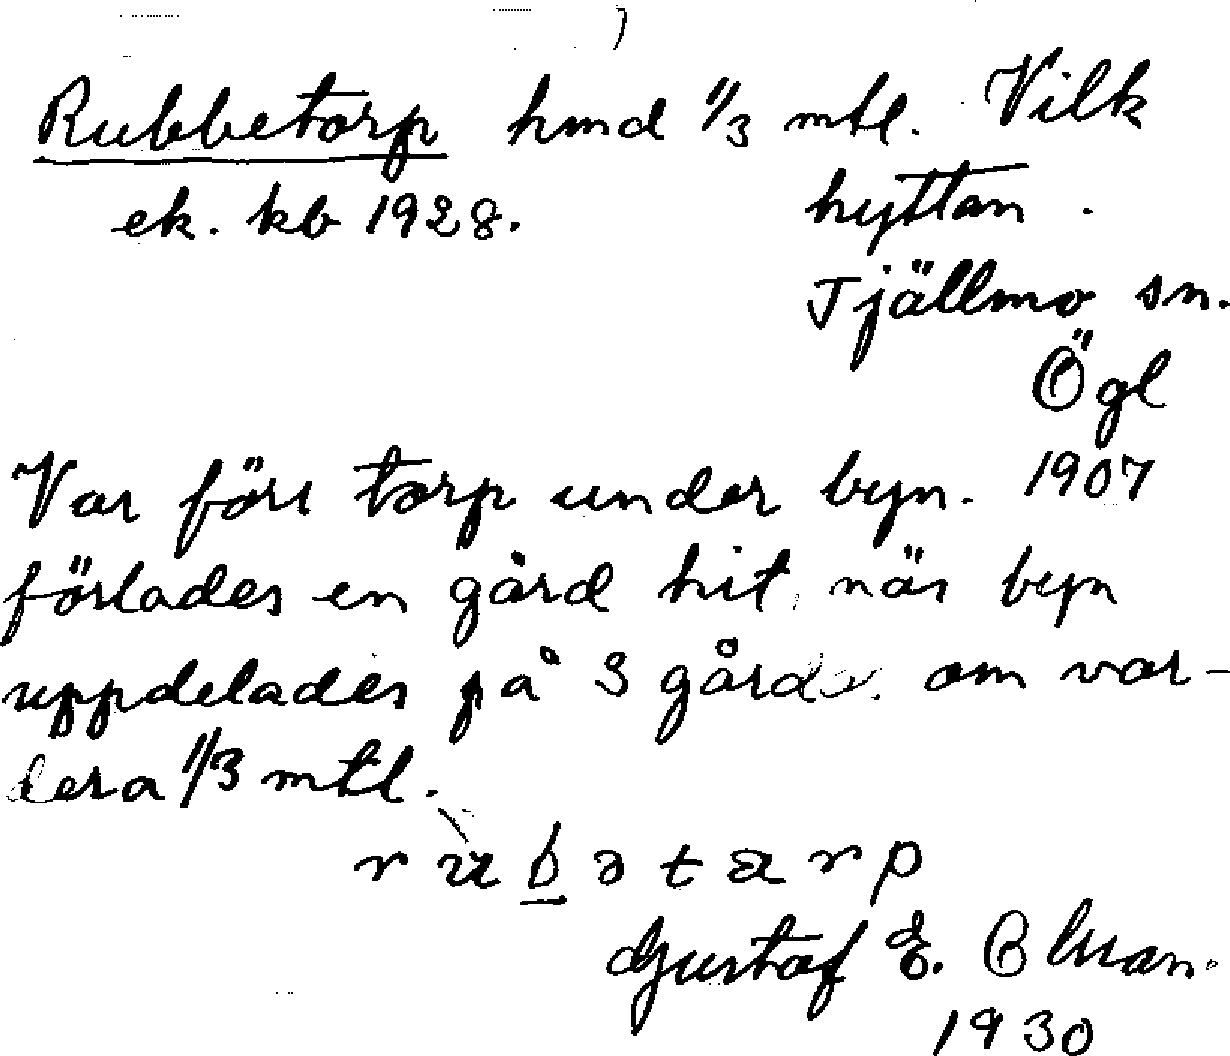 Rubbetorp hmd 1/3 mtl. Vilk
ek. kb 1928. hyttan.
Tjällmo sn.
Ögl
Var förr torp under byn. 1907
förlades en gård hit, när byn
uppdelades på 3 gårdar om var-
dera 1/3 mtl.
Gustaf E.
1930